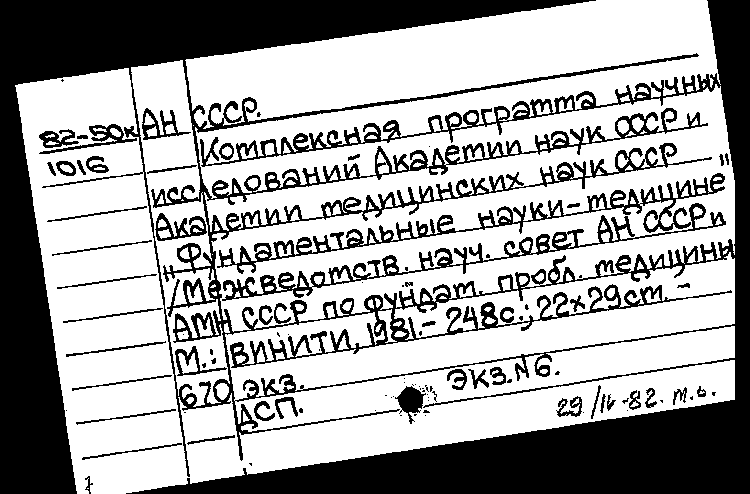 82-50к АН СССР.
1016 Комплексная программа научных
исследований Академии наук СССР и
Академии медицинских наук СССР
„Фундаментальные науки-медицине"
/Межведомств. науч. совет АН СССР и
АМН СССР по фундам. пробл. медицины
М.: ВИНИТИ, 1981.- 248с.; 22×29см. -
670 экз.
ДСП. Экз.№6.
29/IV-82. т.о.